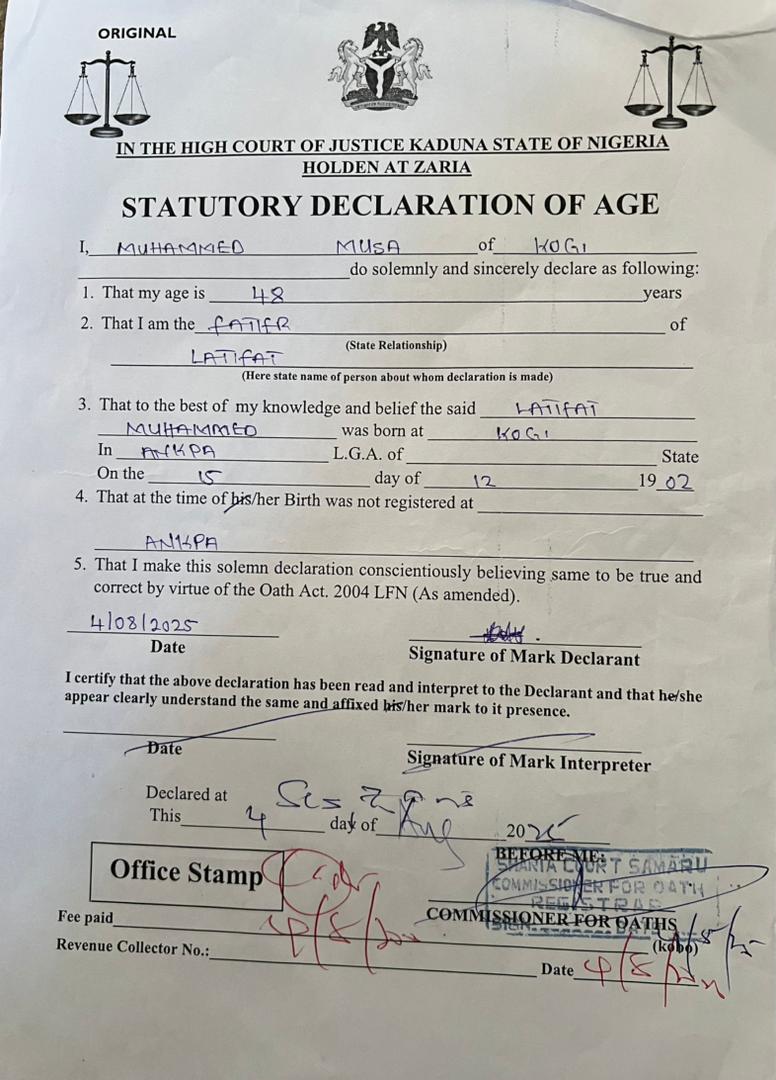 ORIGINAL
IN THE HIGH COURT OF JUSTICE KADUNA STATE OF NIGERIA
HOLDEN AT ZARIA
STATUTORY DECLARATION OF AGE
I, MUHAMMED MUSA of KOGI
do solemnly and sincerely declare as following:
1. That my age is 48 years
2. That I am the FATIFR of
(State Relationship)
LATIFAT
(Here state name of person about whom declaration is made)
3. That to the best of my knowledge and belief the said LATIFAT
MUHAMMED was born at KOGI
In ANKPA L.G.A. of State
On the 15 day of 12 19 02
4. That at the time of his/her Birth was not registered at
ANKPA
5. That I make this solemn declaration conscientiously believing same to be true and
correct by virtue of the Oath Act. 2004 LFN (As amended).
4/08/2025
Date
Signature of Mark Declarant
I certify that the above declaration has been read and interpret to the Declarant and that he/she
appear clearly understand the same and affixed his/her mark to it presence.
Date
Signature of Mark Interpreter
Declared at
This 4 day of Aug 2025
BEFORE ME:
SHARIA COURT SAMARU
COMMISSIONER FOR OATH
REGISTRAR
Office Stamp
COMMISSIONER FOR OATHS
Fee paid (kobo)
Revenue Collector No.:
Date